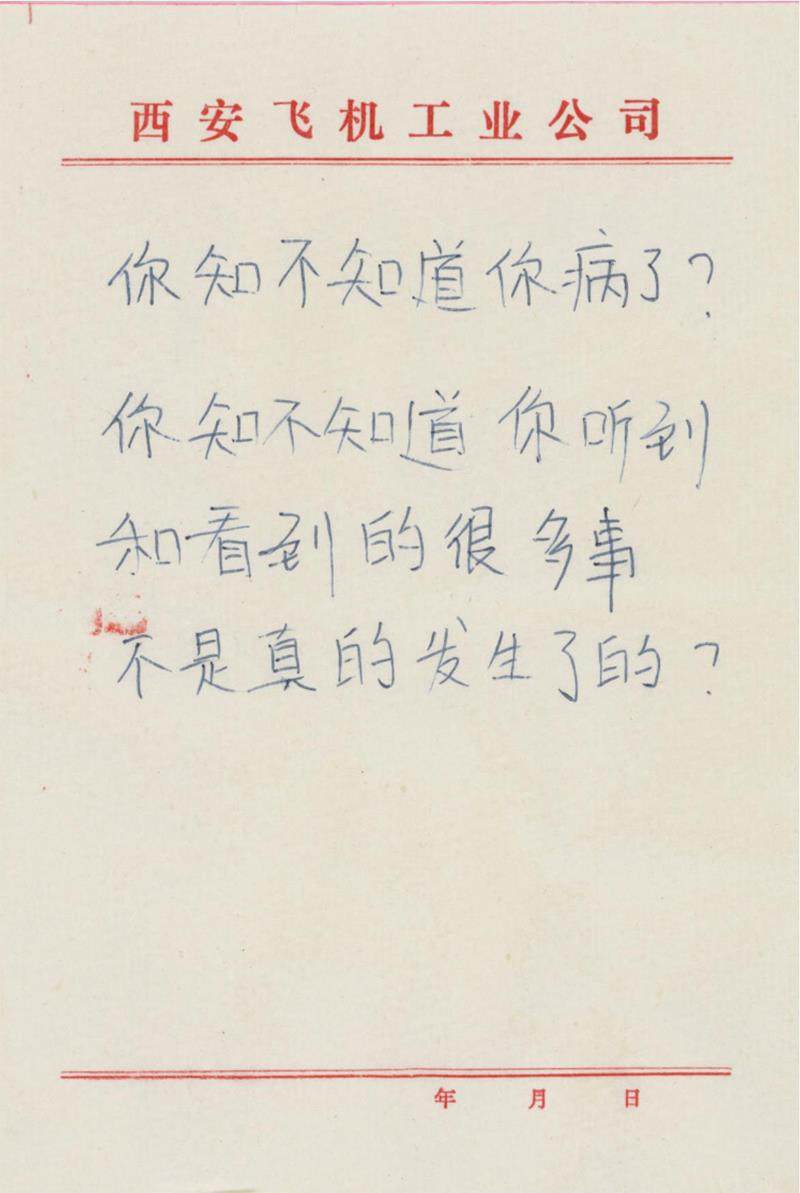 西安飞机工业公司
你知不知道你病了?
你知不知道你听到
和看到的很多事
不是真的发生了的?
年 月 日